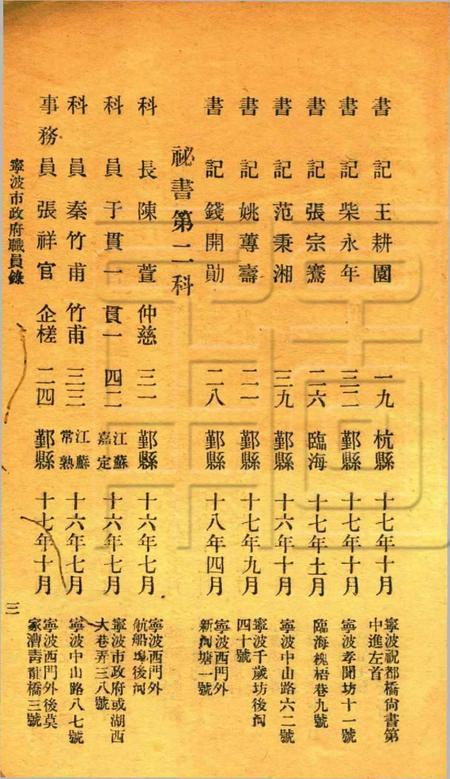 書記 王耕園 一九 杭縣 十七年十月 寧波祝都橋尙書第中進左首
書記 柴永年 三二 鄞縣 十七年十月 寧波孝聞坊十一號
書記 張宗騫 二六 臨海 十七年十一月 臨海槐梧巷九號
書記 范秉湘 三九 鄞縣 十六年十月 寧波中山路六二號
書記 姚蓴壽 二一 鄞縣 十七年九月 寧波千歲坊後河四十號
書記 錢開勛 二八 鄞縣 十八年四月 寧波西門外新河塘一號
祕書第二科
科長 陳萱 仲慈 三一 鄞縣 十六年七月 寧波西門外航船埠後河
科員 于貫一 貫一 四二 江蘇嘉定 十六年七月 寧波市政府或湖西大巷弄三八號
科員 秦竹甫 竹甫 三三 江蘇常熟 十六年七月 寧波中山路八七號
事務員 張祥官 企槎 二四 鄞縣 十七年十月 寧波西門外後莫家漕靑龍橋三號
寧波市政府職員錄
三